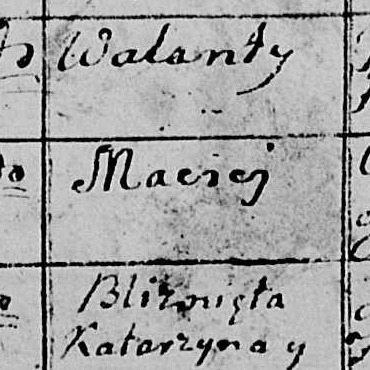 Walanty
Maciej
Bliznięta
Katarzyna y